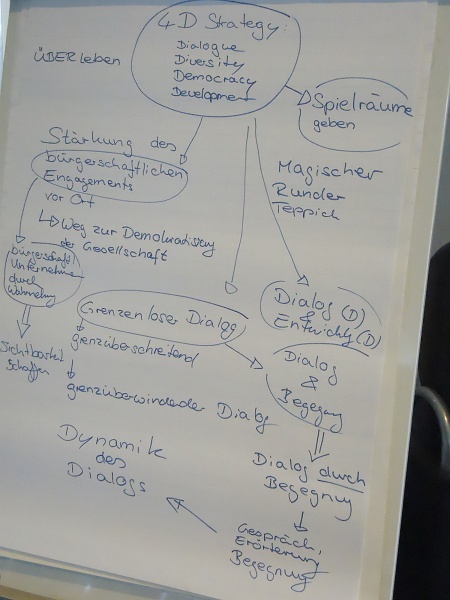 4D Strategy:
Dialogue
Diversity
Democracy
Development
ÜBERleben
Spielräume
geben
Stärkung des
bürgerschaftlichen
Engagements
vor Ort
Weg zur Demokratisierg
der Gesellschaft
Magischer
Runder
Teppich
bürgerschaftl
Unternehme
durch
Sichtbarkeit
schaffen
Grenzenloser Dialog
grenzüberschreitend
grenzüberwindender Dialog
Dialog (D)
&
Entwicklg (D)
Dialog
&
Begegnung
Dialog durch
Begegnung
Gespräch,
Erörterung
Begegnung
Dynamik
des
Dialogs